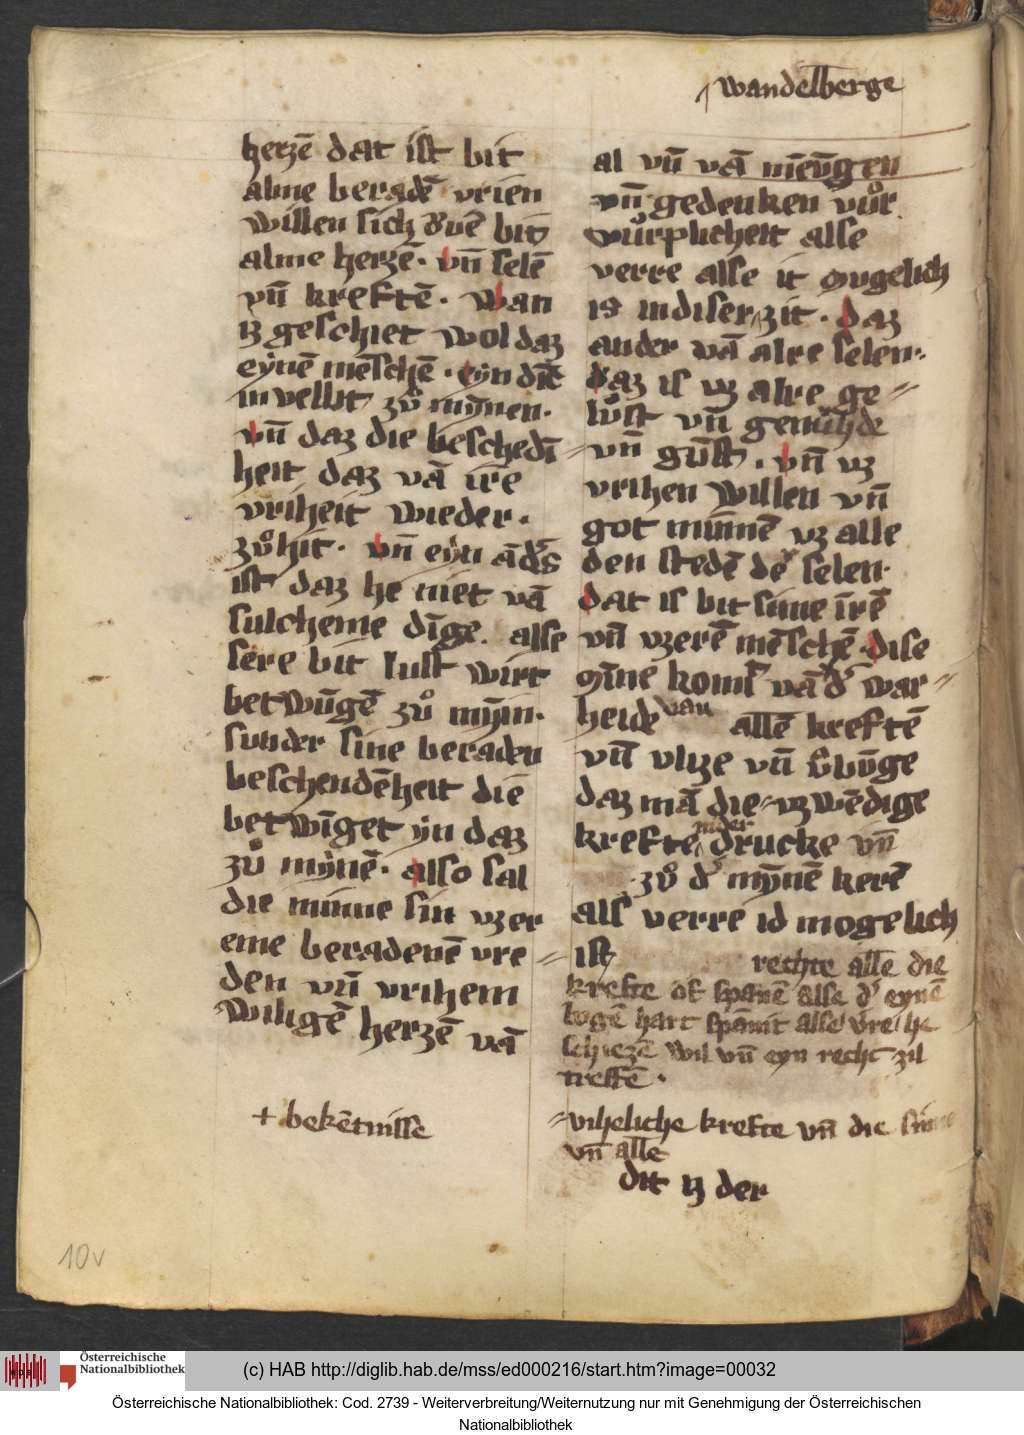 wandelberge
herzē dat ist bit
alme beradē vrien
willen sich d'vē bit
alme herzē. vn̄ selē
vn̄ kreftē. wan
iz geschiet wol daz
eynē mēschē. eyn dīc
in vellit zvͦ mynen.
vn̄ daz die beschedī
heit daz vā ire
vriheit wieder.
zvͦhit. vn̄ eyn ād's
ist daz he niet vā
sulcheme dīge. alse
sere bit lust wirt
betwūgē zvͦ mȳin.
sunder sine beraden
beschendēheit die
betwīget yn daz
zvͦ mynē. also sal
die minne sin vzer
eme beradenē vre
den vn̄ vrihem
willigē herzē vā
+ bekētnisse
al vn̄ vā mēv̄gen
vn̄ gedenken vuͦr
wuͦrplicheit alse
verre alse it mugelich
is in diser zit. daz
ander vā alre selen.
daz is vz alre ge
luͦst vn̄ gemuͦde
vn̄ gūst. vn̄ vz
vrihen willen vn̄
got minnē vz alle
den stedē der selen.
dat is bit sime īrē
vn̄ vzerē mēschē. dise
mīne komīt vā d' war
heide van allē kreftē
vn̄ vlize vn̄ vͦbūge
daz mā die vzwēdige
krefte nider drucke vn̄
zvͦ d' mȳnē kerē
als verre id mogelich
ist rechte alle die
krefte of spanē alse d' eynē
bogē hart spānit alse vre he
schiezē wil vn̄ eyn recht zil
treffē.
viheliche krefte vn̄ die sinne
vn̄ alle
dit iz der
10v
Österreichische
Nationalbibliothek
(c) HAB http://diglib.hab.de/mss/ed000216/start.htm?image=00032
Österreichische Nationalbibliothek: Cod. 2739 - Weiterverbreitung/Weiternutzung nur mit Genehmigung der Österreichischen
Nationalbibliothek